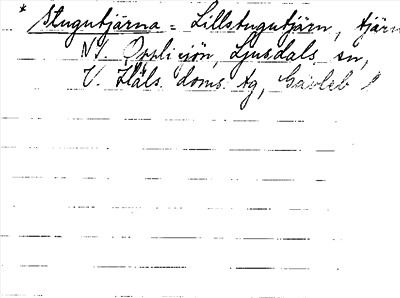 * Stugutjärna = Lillstugutjärn, tjärn
NV. Opplisjön, Ljusdals sn,
V. Häls. doms. tg, Gävleb l